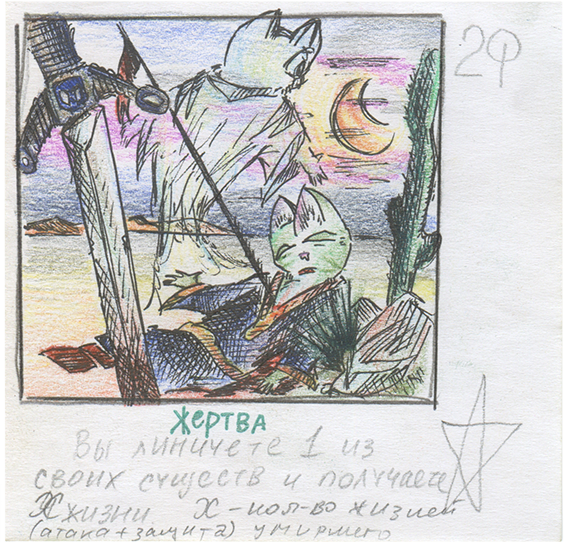 2Ф
Жертва
Вы лишаете 1 из
своих существ и получаете
X жизни X - кол-во жизней
(атака + защита) умиршего